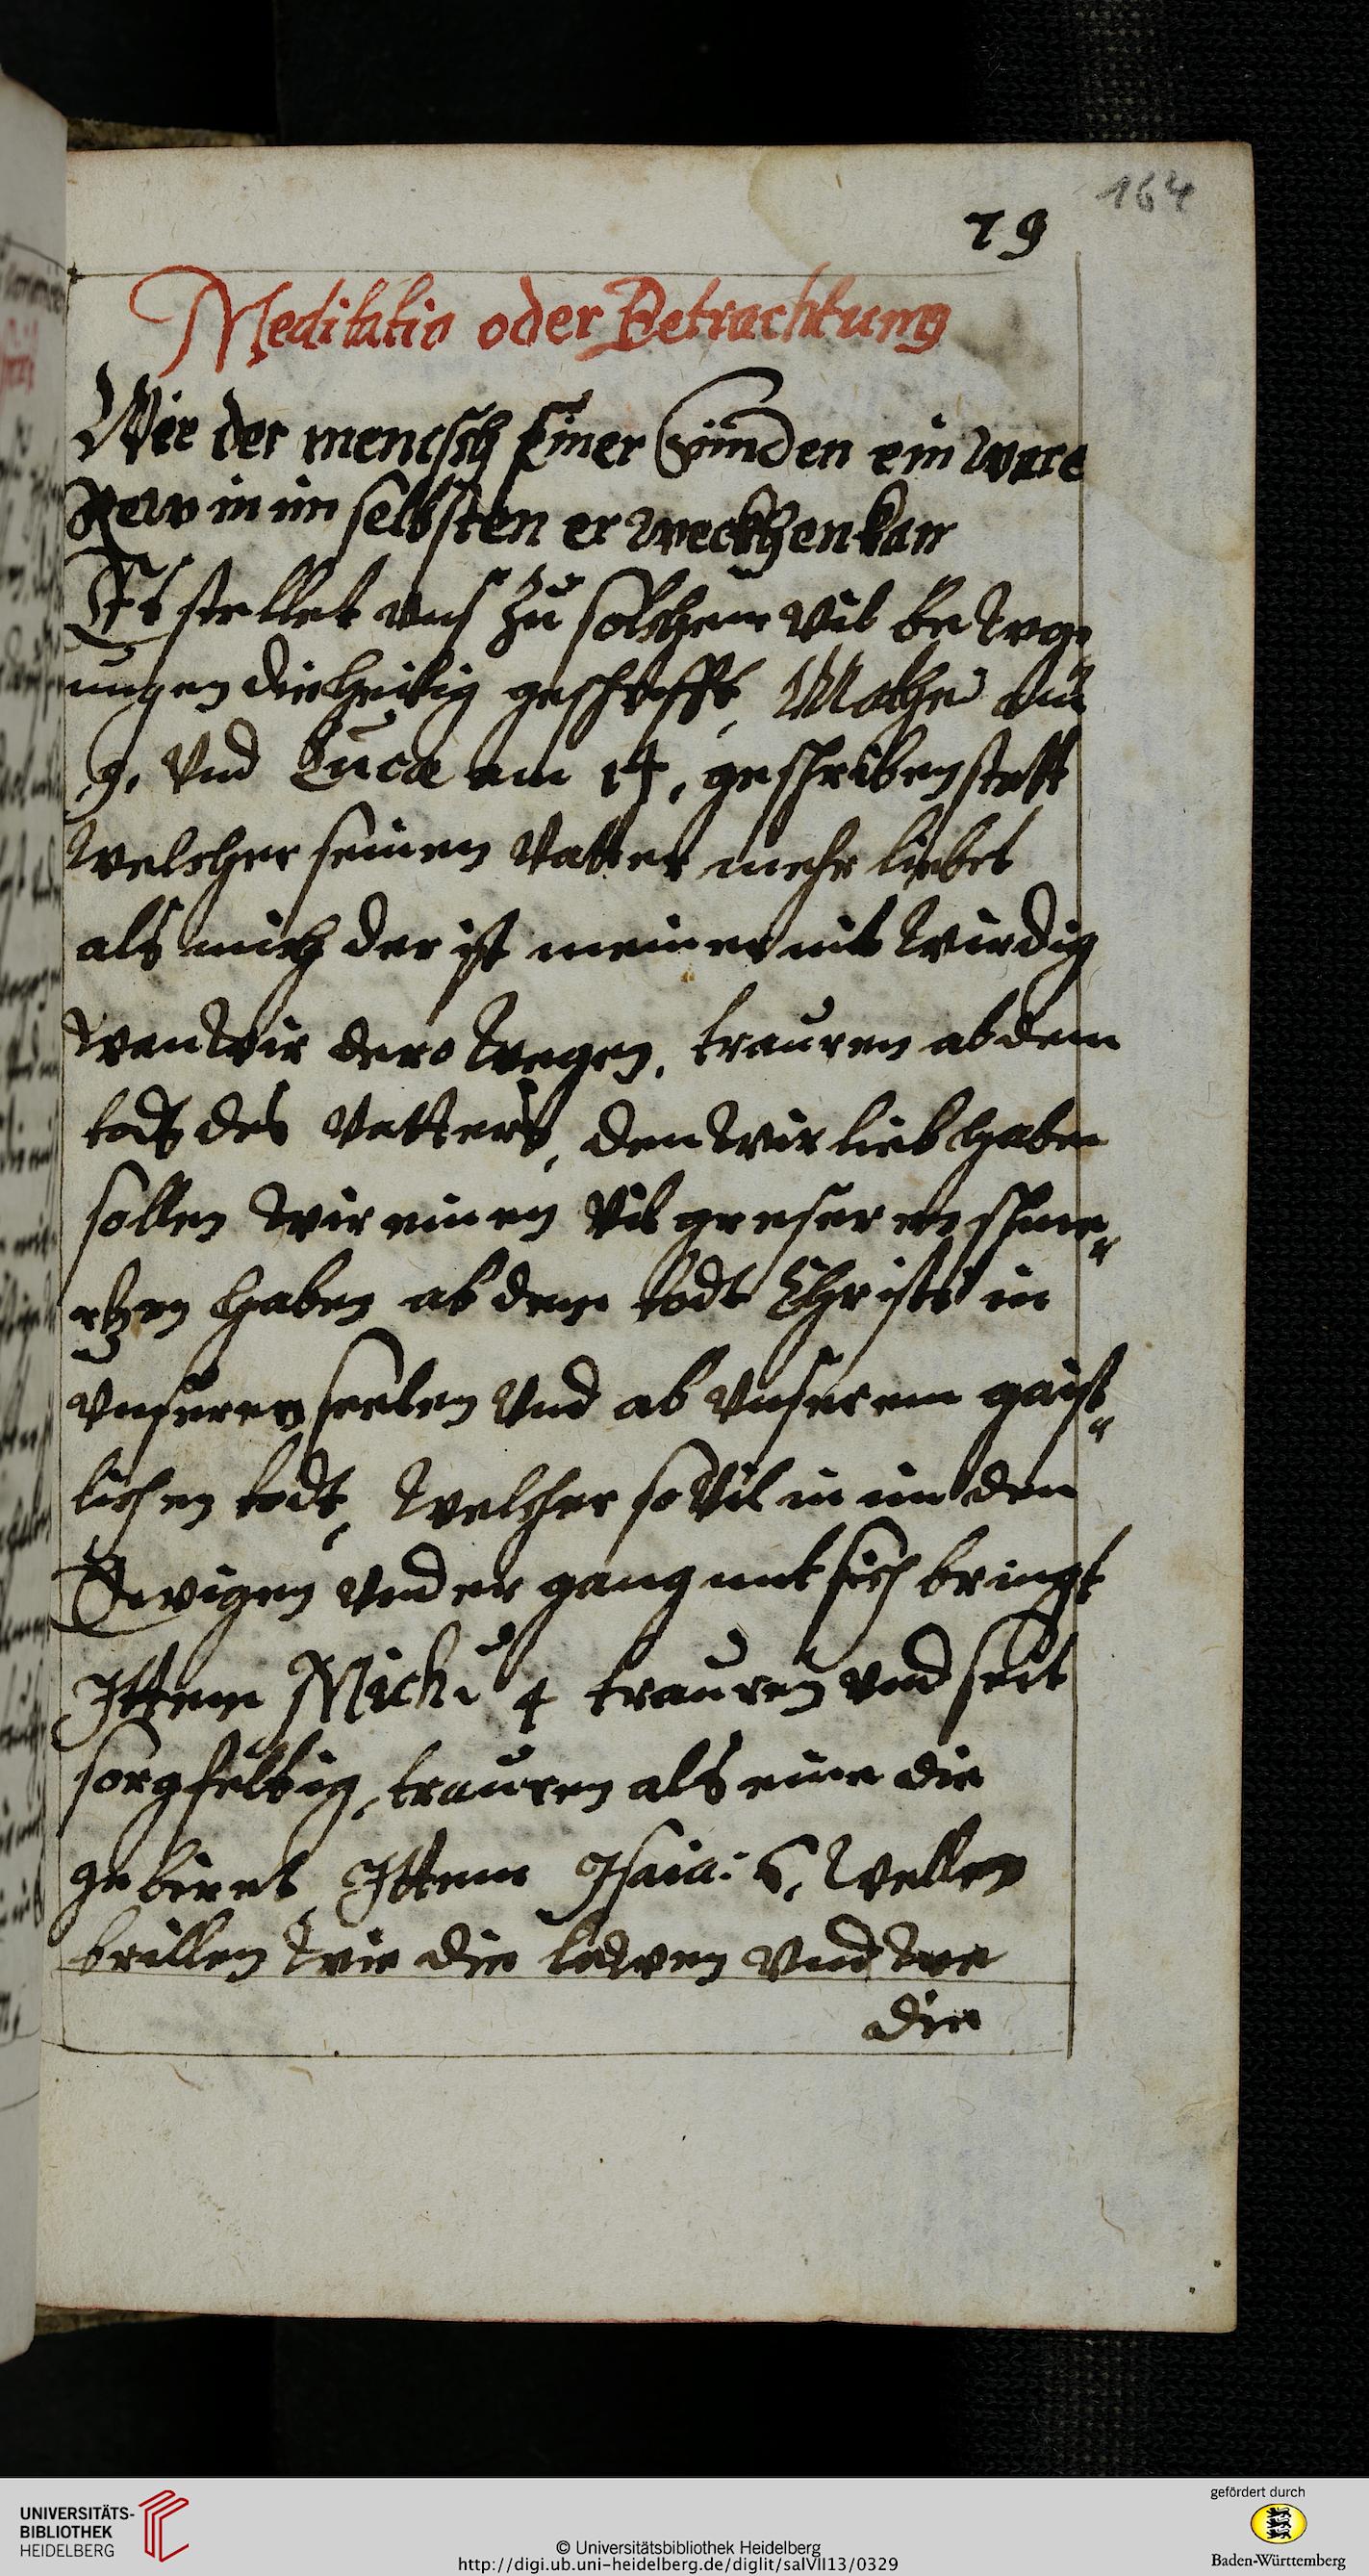 164
79
Meditatio oder Betrachtung
Wie der mencsch seiner Sünden ein ware
Rew in im selbsten erweckhen kan
Es stellet unß zu solchem vil bewege
ungen die heilig geschrifft, Mathei am
9. und Lucæ am 14. geschriben steht
welcher seinen Vatter mehr liebet
als mich der ist meiner nit wirdig
wan wir dero wegen, trauren ab dem
todt des Vatters, den wir lieb haben
sollen wir einen vil greseren schme„
rtzen haben ab dem todt Christi in
unseren seelen und ab unserem gaist„
lichen todt, welcher so vil in im den
Ewigen undergang mit sich bringt
Ittem Mich: 4 trauren und seit
sorgfeltig, trauren als eine die
gebiret, Ittem Isaia: 5. wellen
brillen wie die lewen und we
die
UNIVERSITÄTS-
BIBLIOTHEK
HEIDELBERG
© Universitätsbibliothek Heidelberg
http://digi.ub.uni-heidelberg.de/diglit/salVII13/0329
gefördert durch
Baden-Württemberg